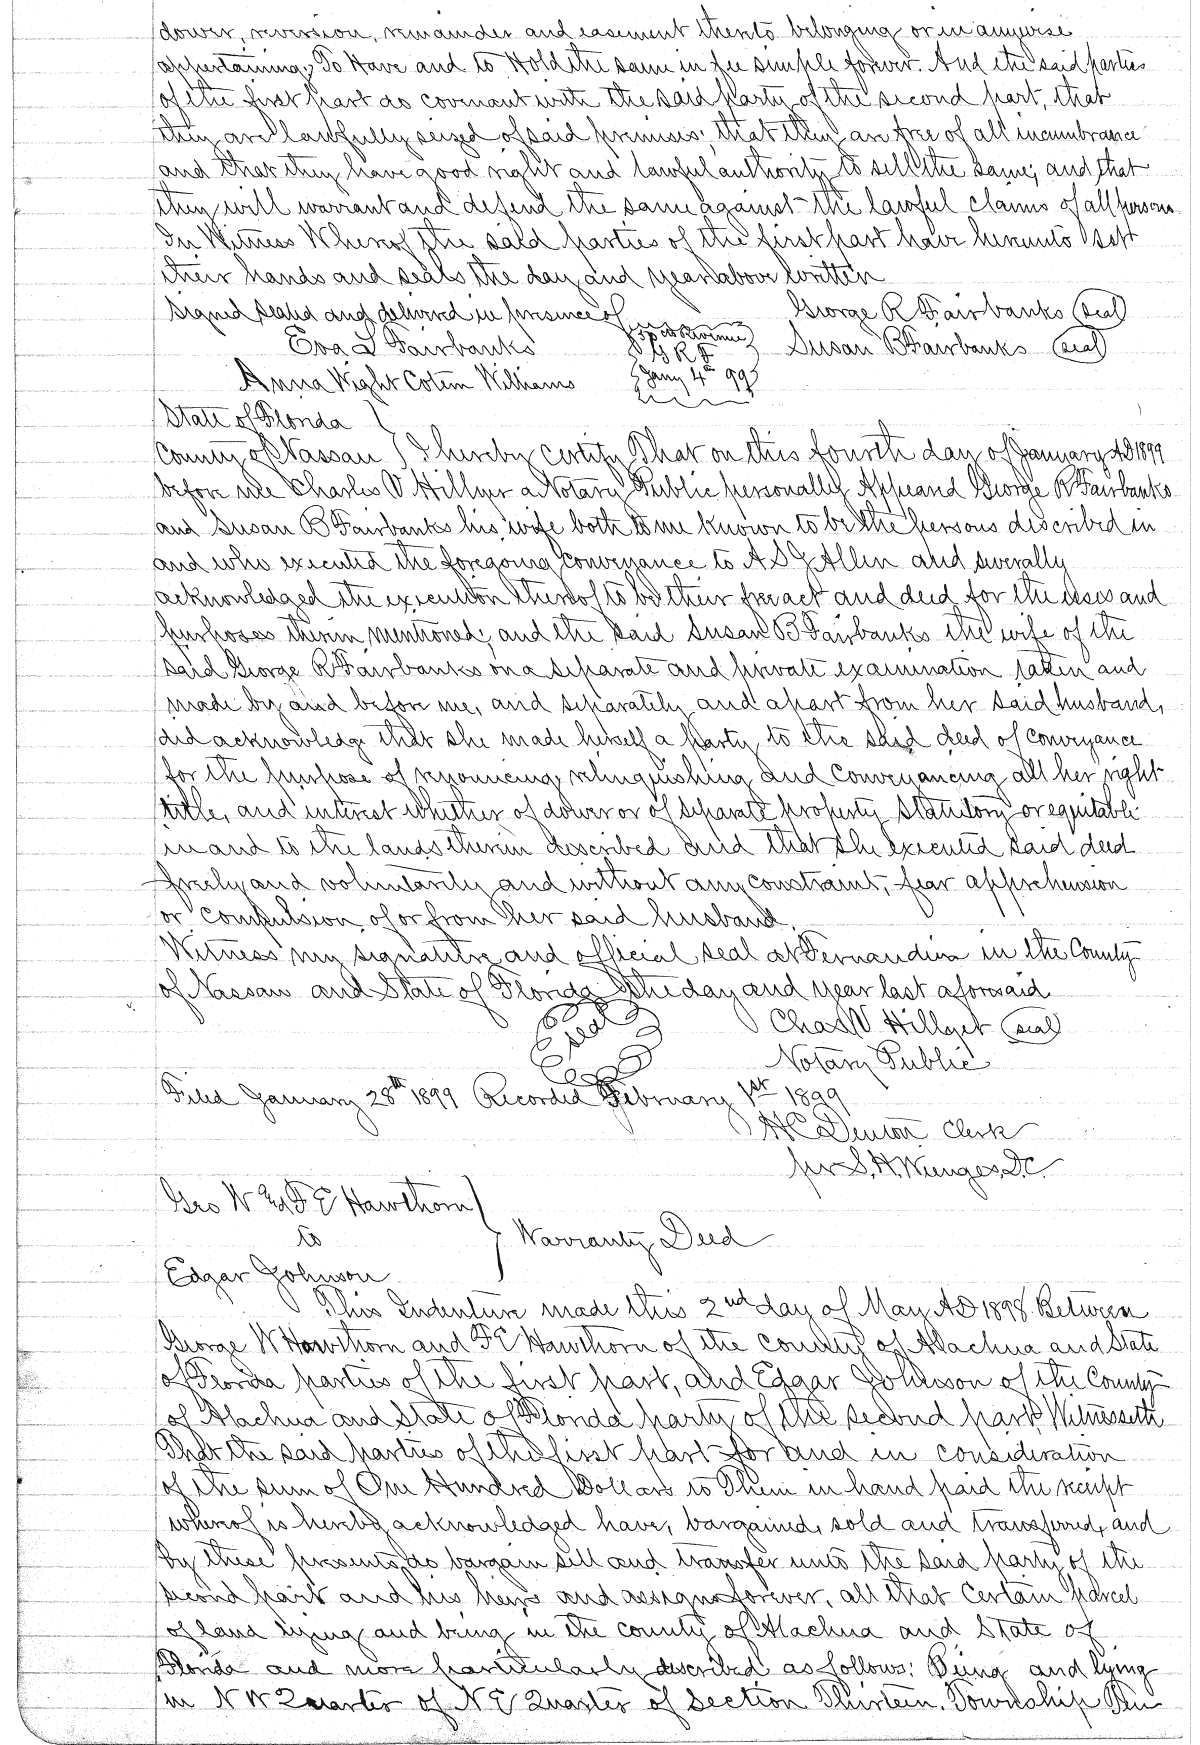 dower, reversion, remainder and easement thereto belonging or in anywise
appertaining; To Have and to Hold the same in fee simple forever. And the said parties
of the first part do covenant with the said party of the second part, that
they are lawfully seized of said premises; that they are free of all incumbrance
and that they have good right and lawful authority to sell the same; and that
they will warrant and defend the same against the lawful claims of all persons
In Witness Whereof the said parties of the first part have hereunto set
their hands and seals the day and year above written
Signed sealed and delivered in presence of George R Fairbanks (seal)
Eva L Fairbanks Revenue G R F Susan B Fairbanks (seal)
Anna Wight Williams Jany 4th 99
State of Florida
County of Nassau I hereby certify That on this fourth day of January AD 1899
before me Charles V Hillyer a Notary Public personally Appeared George R Fairbanks
and Susan B Fairbanks his wife both to me known to be the persons described in
and who executed the foregoing conveyance to A S G Allen and severally
acknowledged the execution thereof to be their free act and deed for the uses and
purposes therein mentioned; and the said Susan B Fairbanks the wife of the
said George R Fairbanks on a separate and private examination taken and
made by and before me, and separately and apart from her said husband,
did acknowledge that she made herself a party to the said deed of conveyance
for the purpose of renouncing, relinquishing and conveyancing all her right
title, and interest whether of dower or of separate property statutory or equitable
in and to the lands therein described and that she executed said deed
freely and voluntarily and without any constraint, fear apprehension
or compulsion of or from her said husband.
Witness my signature and official seal at Fernandina in the County
of Nassau and State of Florida the day and year last aforesaid
(seal) Chas V Hillyer (seal)
Notary Public
Filed January 28th 1899 Recorded February 1st 1899
H C Denton Clerk
per S. H. Wienges, D.C
Geo W & F E Hawthorn
to
Warranty Deed
Edgar Johnson
This Indenture made this 2nd day of May AD 1898 Between
George W Hawthorn and F E Hawthorn of the county of Alachua and State
of Florida parties of the first part, and Edgar Johnson of the County
of Alachua and State of Florida party of the second part, Witnesseth
That the said parties of the first part for and in consideration
of the sum of One Hundred Dollars to Them in hand paid the receipt
whereof is hereby acknowledged have, bargained, sold and transferred, and
by these presents do bargain sell and transfer unto the said party of the
second part and his heirs and assigns forever, all that Certain parcel
of land lying and being in the county of Alachua and State of
Florida and more particularly described as follows: Being and lying
in N W Quarter of N E Quarter of Section Thirteen. Township Ten